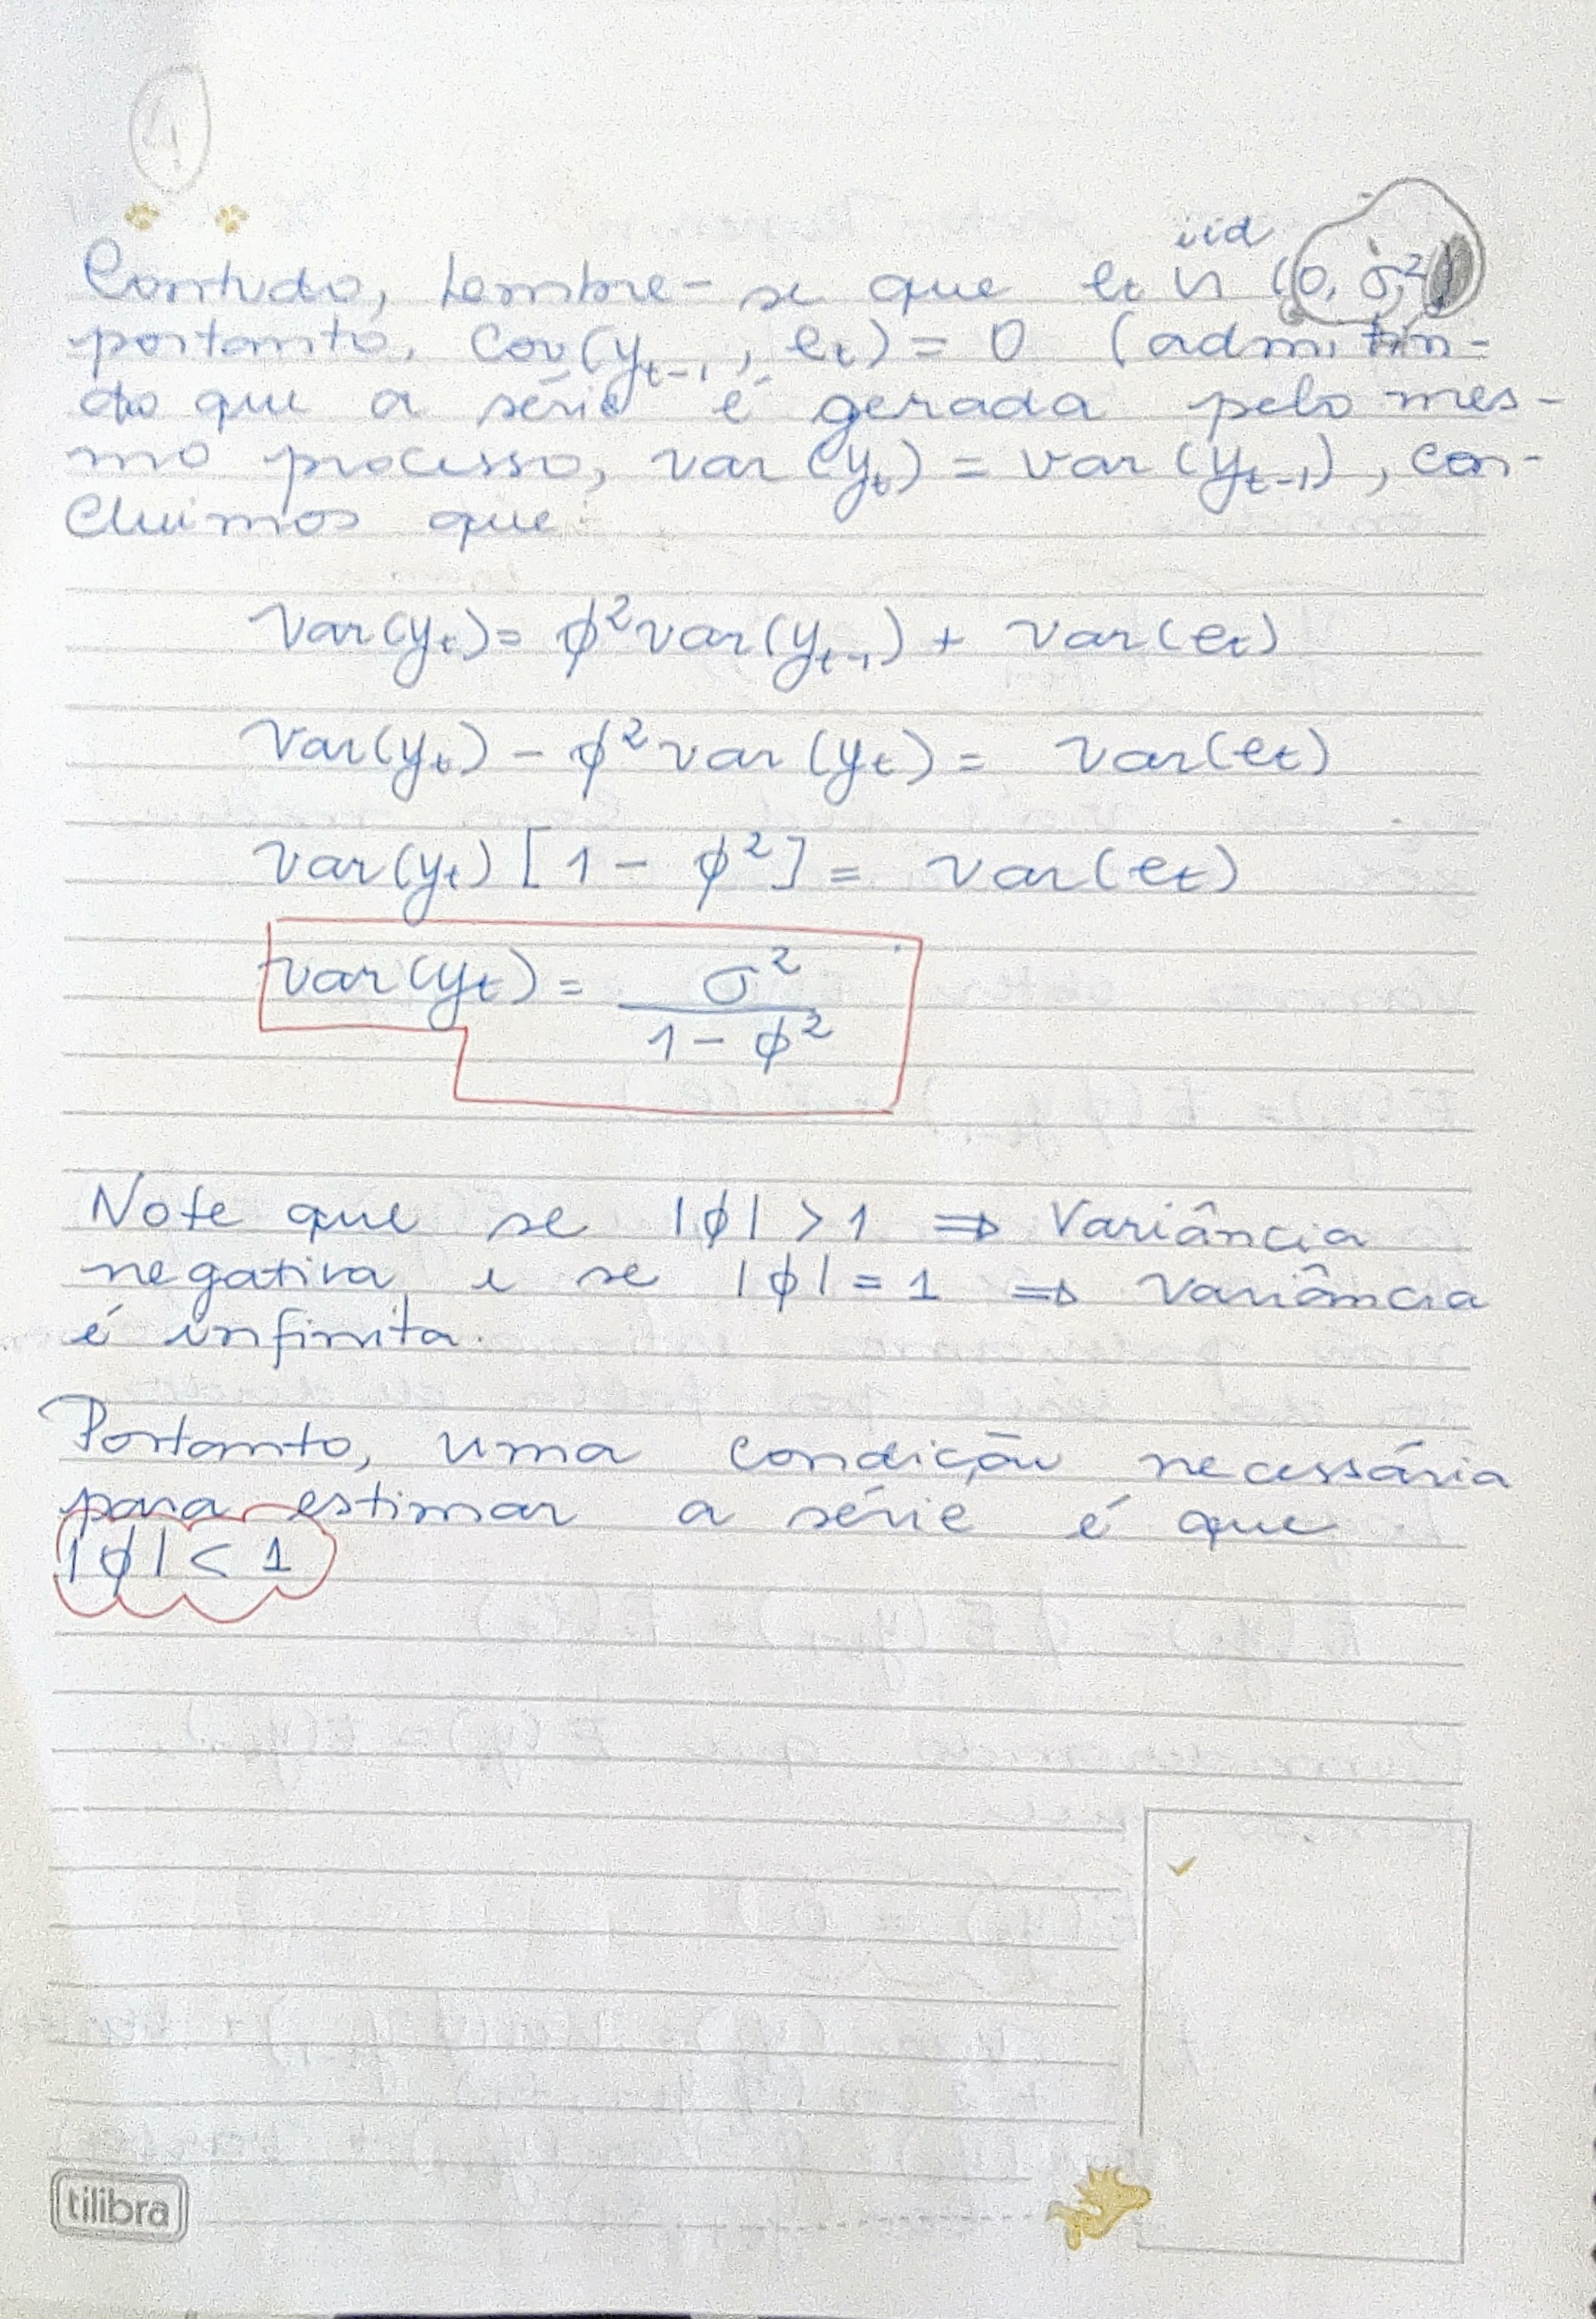 4
iid
Contudo, Lembre-se que et ~ (0, σ²)
portanto, Cov(yt-1, et) = 0 (admitin-
do que a série é gerada pelo mes-
mo processo, var(yt) = var(yt-1), con-
cluimos que
Var(yt) = φ² var(yt-1) + Var(et)
Var(yt) - φ² var(yt) = Var(et)
Var(yt) [1 - φ²] = Var(et)
Var(yt) = σ² / 1 - φ²
Note que se |φ| > 1 ⇒ Variância
negativa, e se |φ| = 1 ⇒ Variância
é infinita.
Portanto, uma condição necessária
para estimar a série é que
|φ| < 1
tilibra